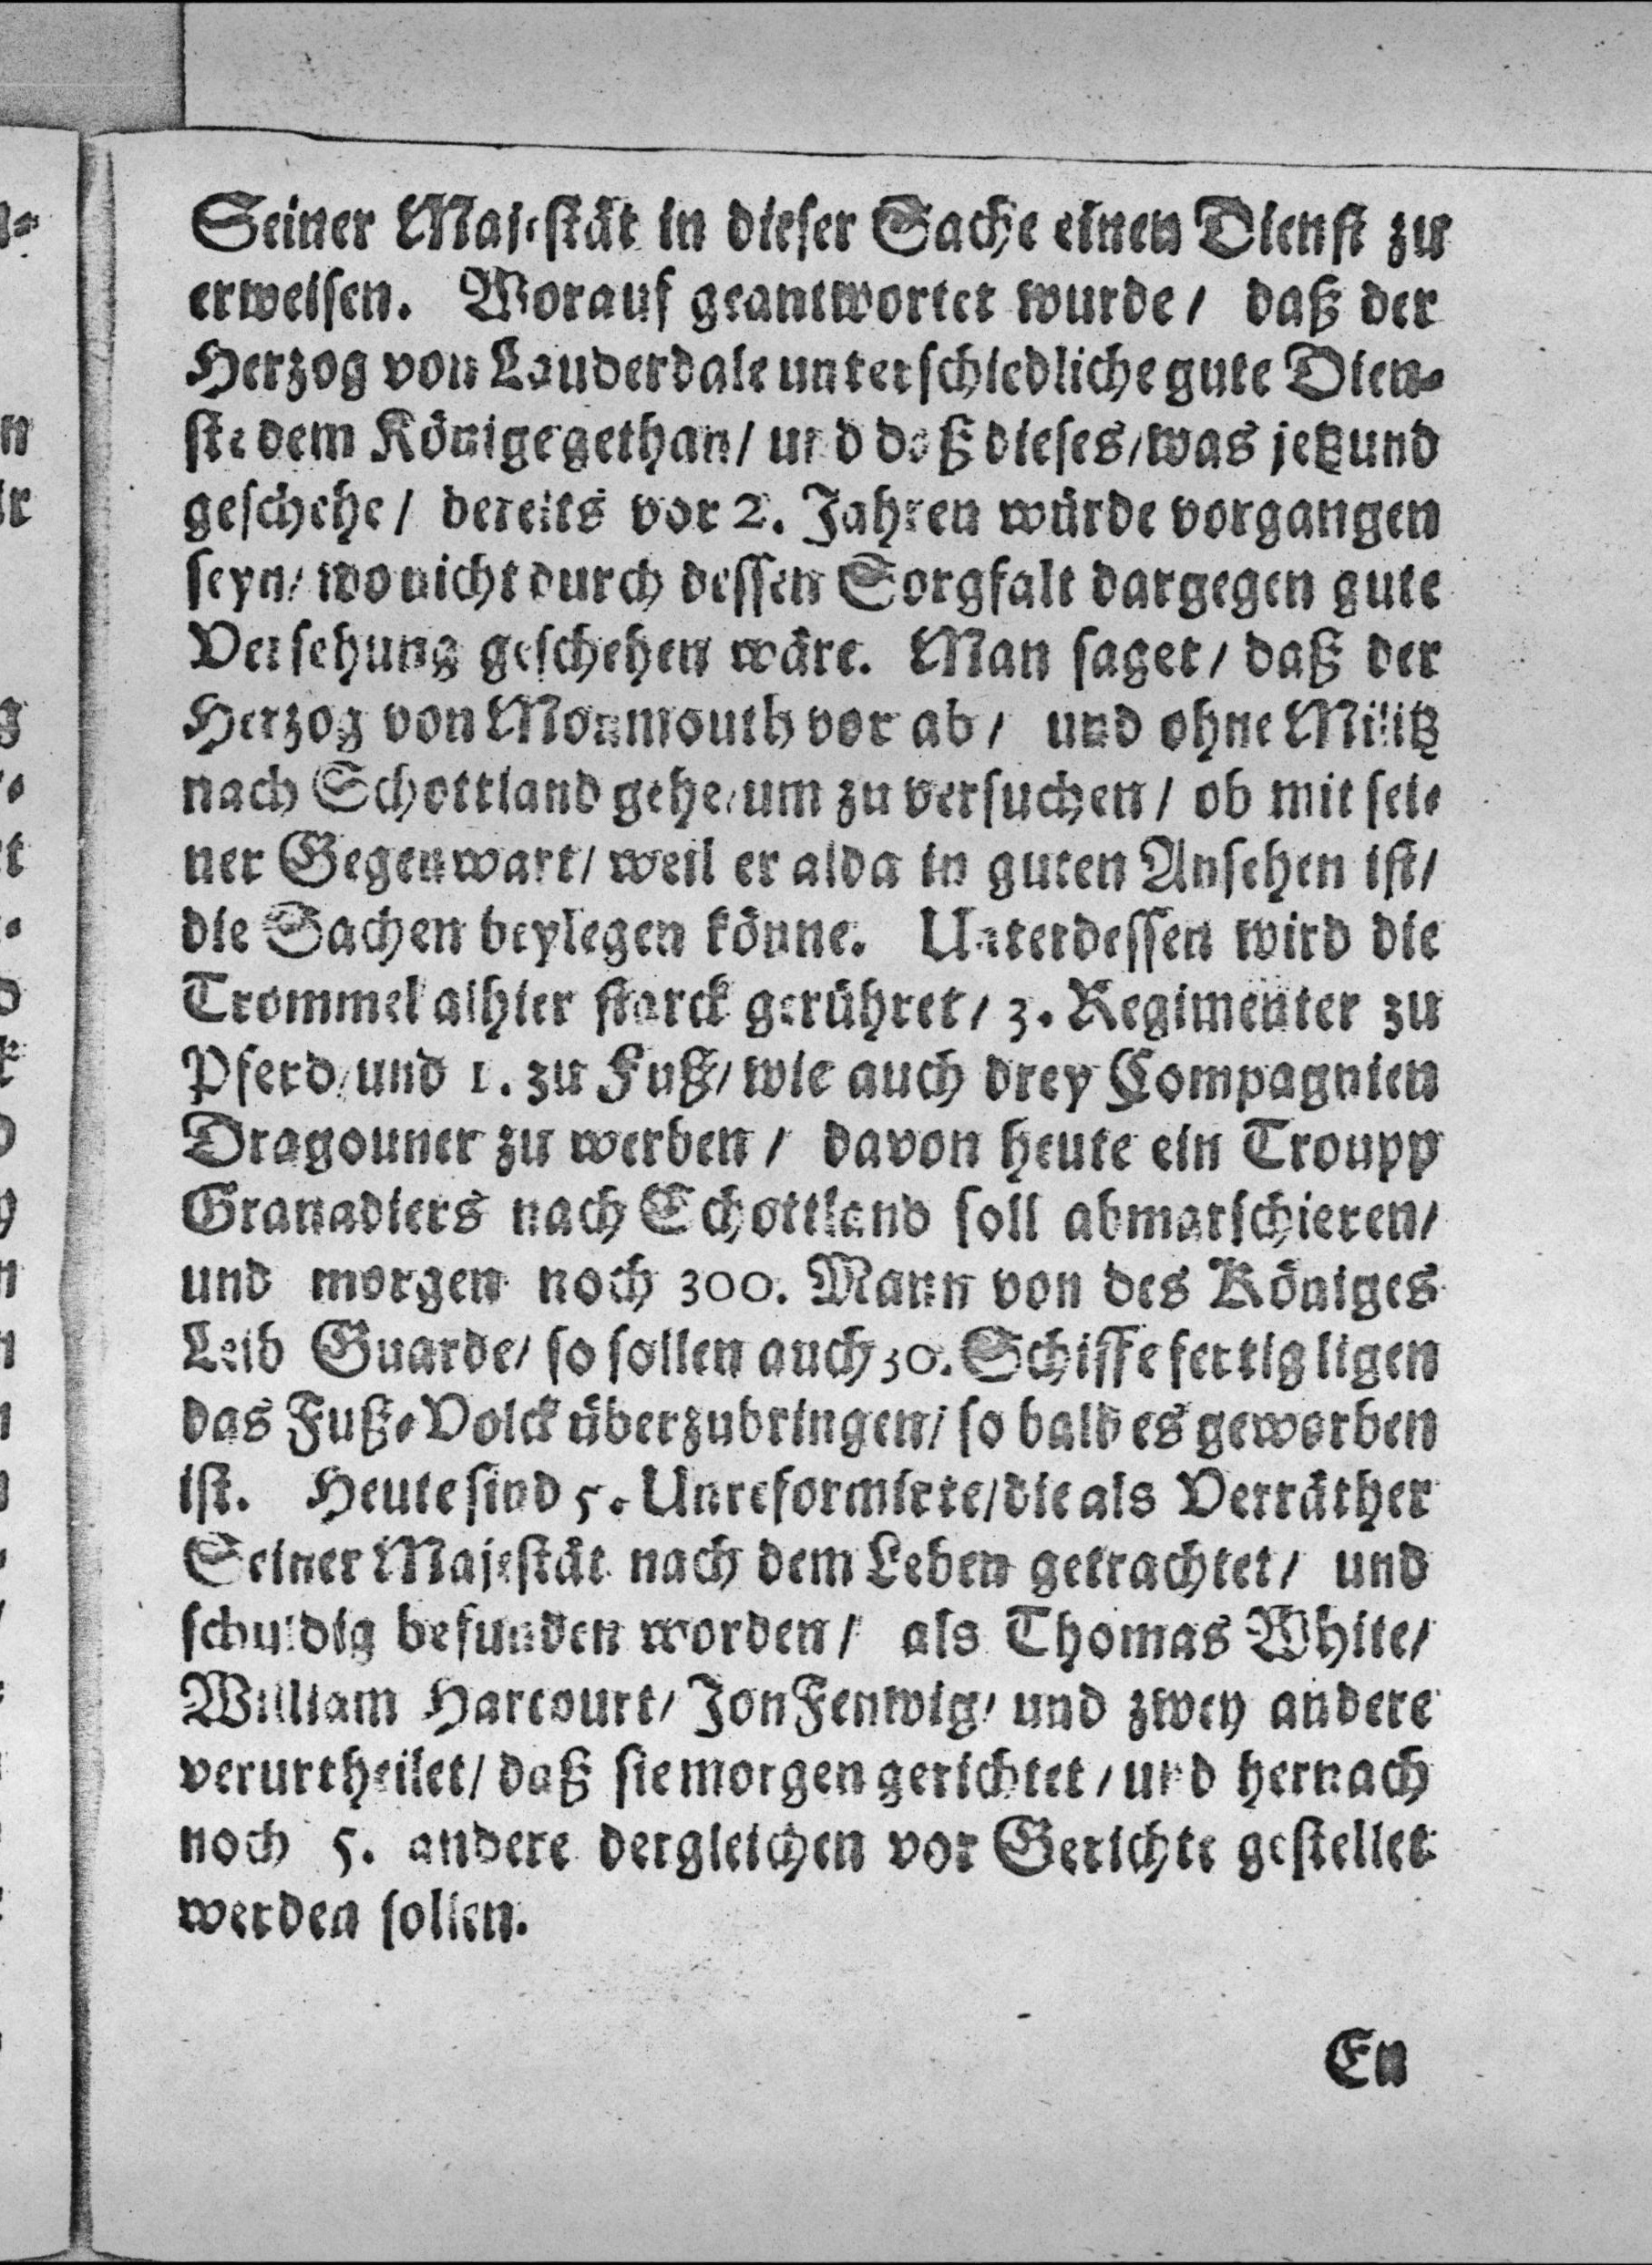 Seiner Majestät in dieser Sache einen Dienst zu
erweisen. Worauf geantwortet wurde / daß der
Herzog von Lauderdale unterschiedliche gute Dien-
ste dem Könige gethan / und daß dieses / was jetzund
geschehe / bereits vor 2. Jahren würde vorgangen
seyn / wo nicht durch dessen Sorgfalt dargegen gute
Versehung geschehen wäre. Man saget / daß der
Herzog von Monmouth vor ab / und ohne Militz
nach Schottland gehe / um zu versuchen / ob mit sei-
ner Gegenwart / weil er alda in guten Ansehen ist /
die Sachen beylegen könne. Unterdessen wird die
Trommel alhier starck gerühret / 3. Regimenter zu
Pferd / und 1. zu Fuß / wie auch drey Compagnien
Dragouner zu werben / davon heute ein Troupp
Granadiers nach Schottland soll abmarschieren /
und morgen noch 300. Mann von des Königes
Leib Guarde / so sollen auch 30. Schiffe fertig ligen
das Fuß-Volck überzubringen / so bald es geworben
ist. Heute sind 5. Unreformirte / die als Verräther
Seiner Majestät nach dem Leben getrachtet / und
schuldig befunden worden / als Thomas White /
William Harcourt / Jon Fenwig / und zwey andere
verurtheilet / daß sie morgen gerichtet / und hernach
noch 5. andere dergleichen vor Gerichte gestellet
werden sollen.
En